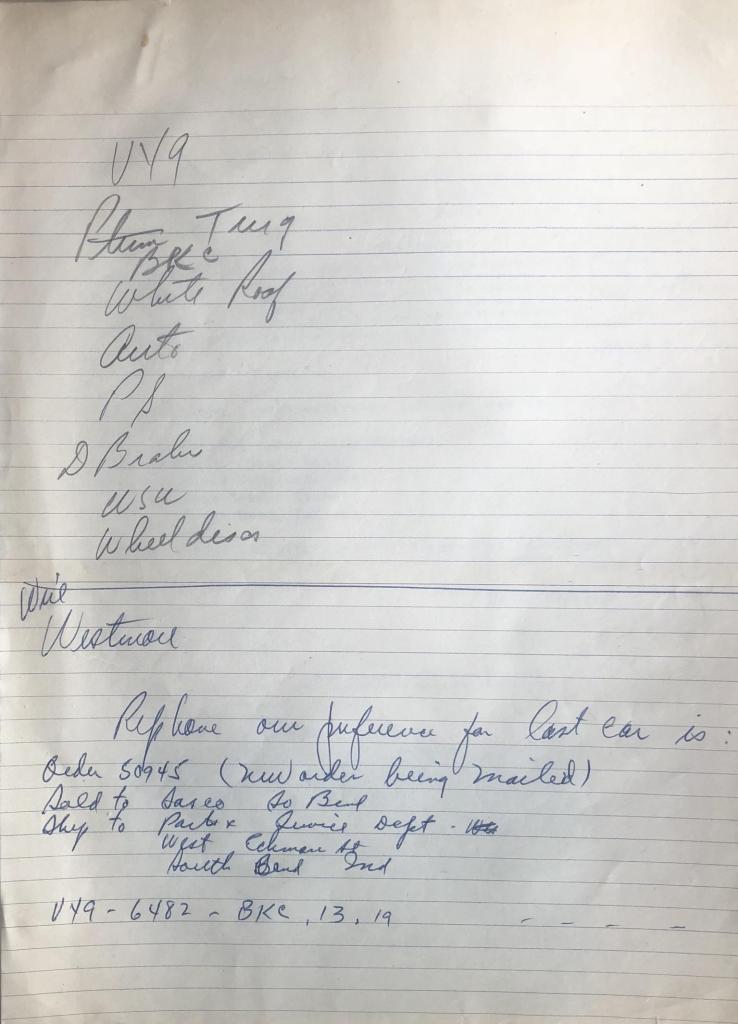 VY9
Plum Turq
BKC
White Roof
Auto
PS
D Brake
WSW
Wheel discs
Wire
Westmore
Rephone our preference for last car is:
Order 50945 (new order being mailed)
Sold to Sasco So Bend
Ship to Parts & Service Dept.
West St
South Bend Ind
VY9-6482-BKC, 13, 19 - - - -